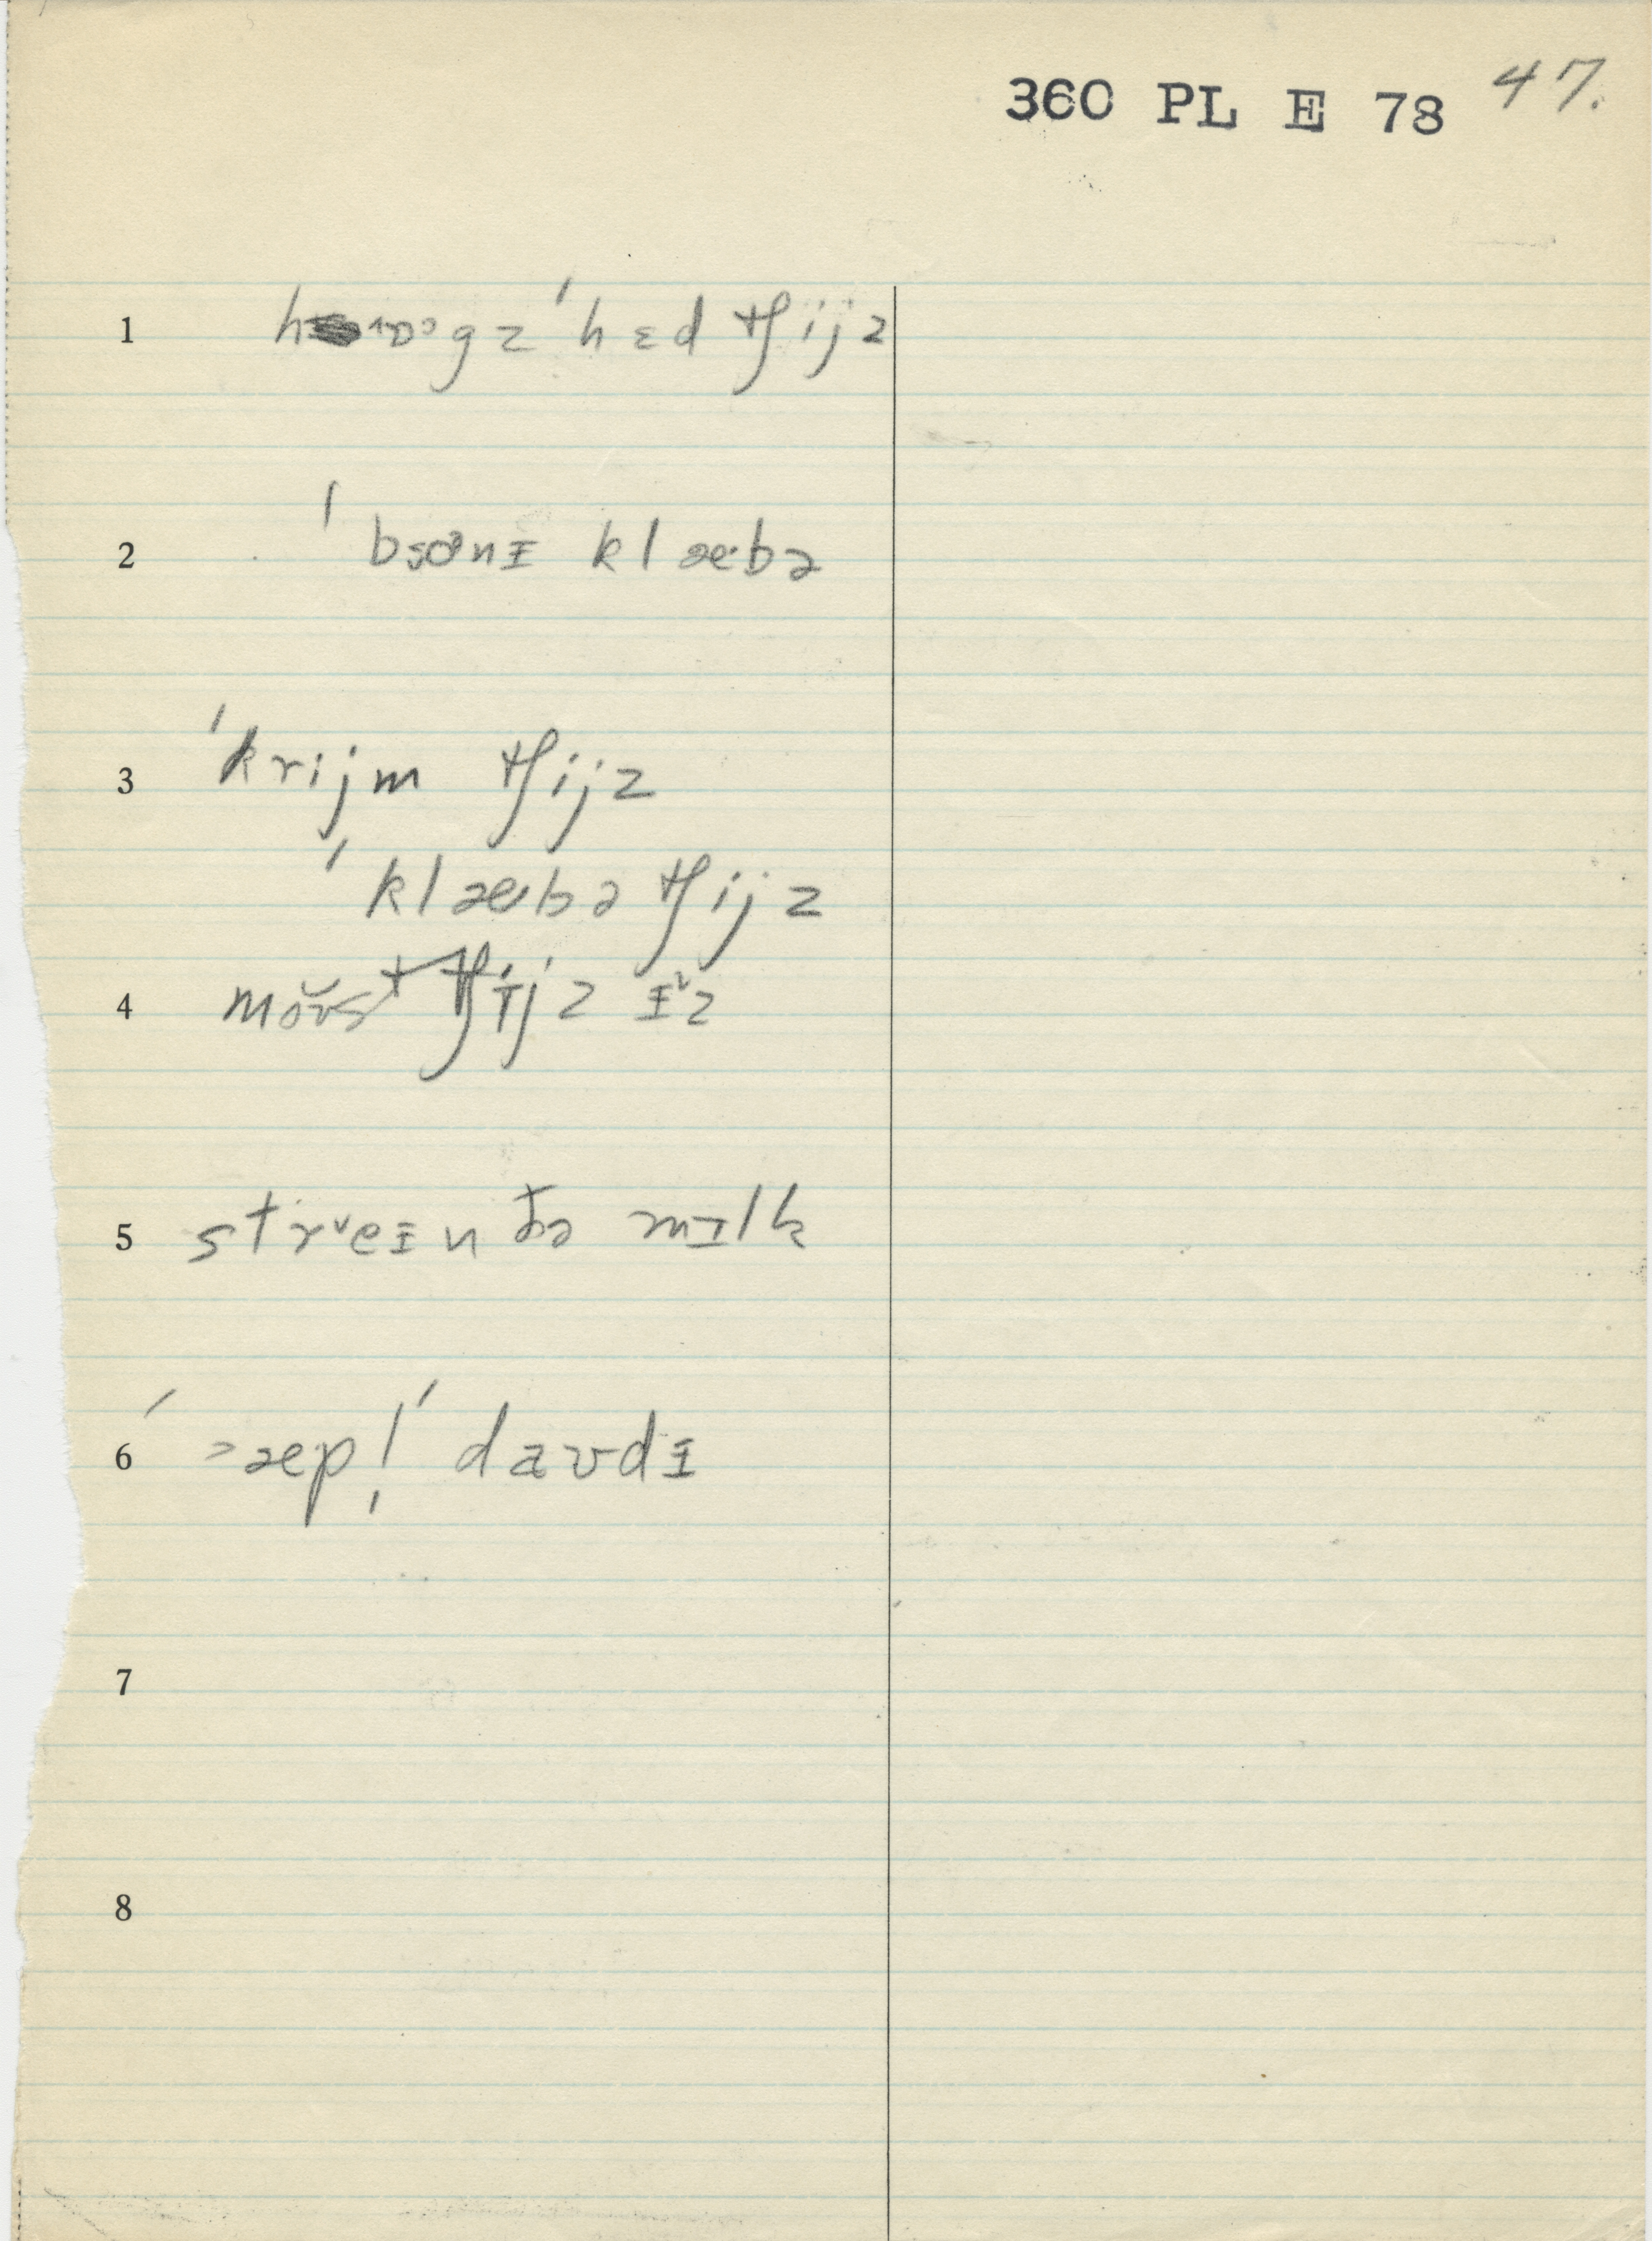 360 PL E 78 47.
1 ˈhɛdʧijz
2 ˈbɔnɪ klæbə
3 ˈkrijm ʧijz
ˈklæbə ʧijz
4 ʧijz
5 strᵛeɪn ðə mɪlk
6 ˈ>æpl̩ ˈdaʊdɪ
7
8